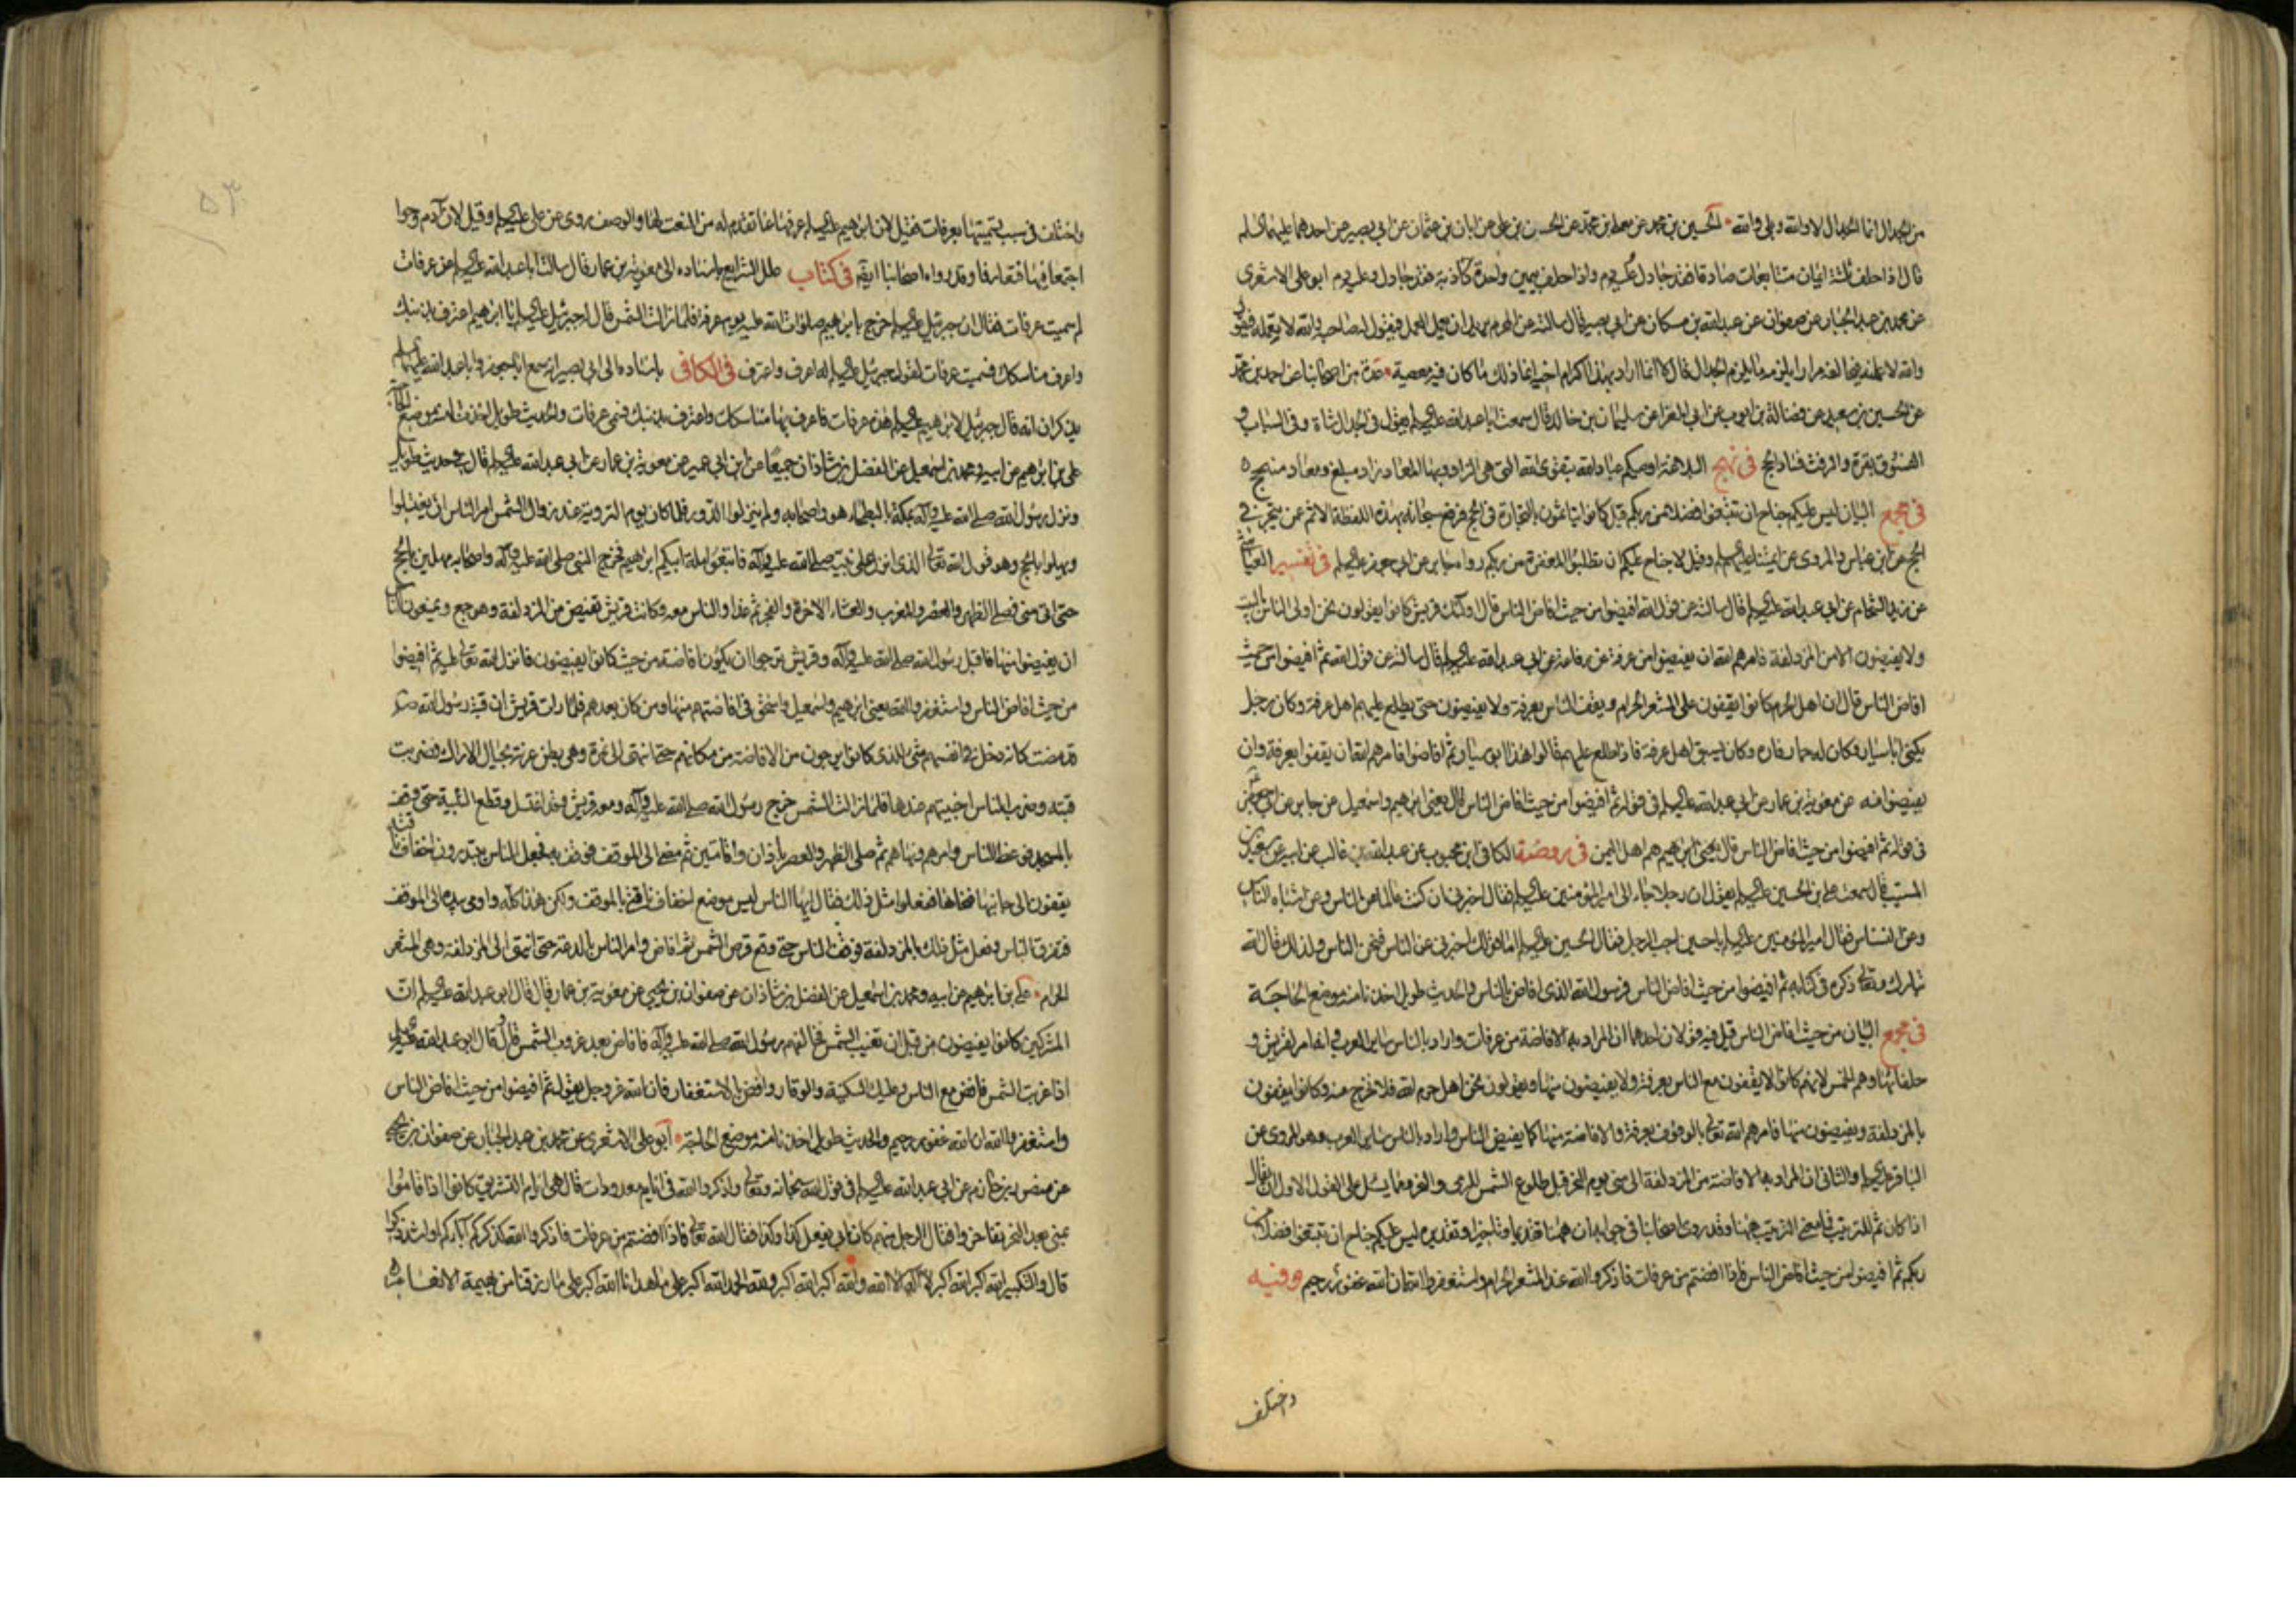 من الجدال انما الجدال لا والله وبلى والله الحسين بن محمد عن معلى بن محمد عن الحسن بن علي عن ابان بن عثمان عن ابي بصير عن احدهما عليهما السلم
قال اذا حلف ثلثة ايمان متتابعات صادقا فقد جادل وعليه دم واذا حلف بيمين واحدة كاذبة فقد جادل وعليه دم ابو علي الاشعري
عن محمد بن عبد الجبار عن صفوان عن عبد الله بن مسكان عن ابي بصير قال سالته عن المحرم يريد ان يعمل العمل فيقول له صاحبه والله لا تعمله فيقول
والله لاعملنه فيحالفه مرارا يلزمه ما يلزم الجدال قال لا انما اراد بهذا اكرام اخيه انما ذلك ما كان فيه معصية عدة من اصحابنا عن احمد بن محمد
عن الحسين بن سعيد عن فضالة بن ايوب عن ابي المغرا عن سليمان بن خالد قال سمعت ابا عبد الله عليه السلم يقول في الجدال شاة وفي السباب و
الفسوق بقرة والرفث فساد الحج في نهج البلاغة اوصيكم عباد الله بتقوى الله التي هي الزاد وبها المعاد زاد مبلغ ومعاد منجح
في مجمع البيان ليس عليكم جناح ان تبتغوا فضلا من ربكم قيل كانوا يتاثمون بالتجارة في الحج فرفع سبحانه بهذه اللفظة الاثم عمن يتجر في
الحج عن ابن عباس والمروي عن ائمتنا عليهم السلم وقيل لا جناح عليكم ان تطلبوا المغفرة من ربكم رواه جابر عن ابي جعفر عليه السلم في تفسير العياشي
عن زيد الشحام عن ابي عبد الله عليه السلم قال سالته عن قول الله افيضوا من حيث افاض الناس قال اولئك قريش كانوا يقولون نحن اولى الناس بالبيت
ولا يفيضون الا من المزدلفة فامرهم الله ان يفيضوا من عرفة عن رفاعة عن ابي عبد الله عليه السلم قال سالته عن قول الله ثم افيضوا من حيث
افاض الناس قال ان اهل الحرم كانوا يقفون على المشعر الحرام ويقف الناس بعرفة ولا يفيضون حتى يطلع عليهم اهل عرفة وكان رجل
يكنى ابا سيار وكان له حمار فاره وكان يسبق اهل عرفة فاذا طلع عليهم قالوا هذا ابو سيار ثم افاضوا فامرهم الله ان يقفوا بعرفة وان
يفيضوا منه عن معوية بن عمار عن ابي عبد الله عليه السلم في قوله ثم افيضوا من حيث افاض الناس قال يعني ابرهيم واسمعيل عن جابر عن ابي جعفر
في قوله ثم افيضوا من حيث افاض الناس قال يعني ابرهيم هم اهل اليمن في روضة الكافي ابن محبوب عن عبد الله بن غالب عن ابيه عن سعيد بن
المسيب قال سمعت علي بن الحسين عليه السلم يقول ان رجلا جاء الى امير المؤمنين عليه السلم فقال اخبرني ان كنت عالما عن الناس وعن اشباه الناس
وعن النسناس فقال امير المؤمنين عليه السلم يا حسين اجب الرجل فقال الحسين عليه السلم اما قولك اخبرني عن الناس فنحن الناس ولذلك قال الله
تبارك وتعالى ذكره في كتابه ثم افيضوا من حيث افاض الناس فرسول الله الذي افاض بالناس والحديث طويل اخذنا منه موضع الحاجة
في مجمع البيان من حيث افاض الناس قيل فيه قولان احدهما ان المراد به الافاضة من عرفات واراد بالناس سائر العرب انه امر لقريش و
حلفائها وهم الحمس لانهم كانوا لا يقفون مع الناس بعرفة ولا يفيضون منها ويقولون نحن اهل حرم الله فلا نخرج منه وكانوا يقفون
بالمزدلفة ويفيضون منها فامرهم الله تعالى بالوقوف بعرفة والافاضة منها كما يفيض الناس واراد بالناس سائر العرب وهو المروي عن
الباقر عليه السلم والثاني ان المراد به الافاضة من المزدلفة الى منى يوم النحر قبل طلوع الشمس للرمي والنحر ومما يسئل على القول الاول ان يقال
اذا كان ثم للترتيب فما معنى الترتيب ههنا وقد روى اصحابنا في جوابه ان ههنا تقديما وتاخيرا وتقديره ليس عليكم جناح ان تبتغوا فضلا من
ربكم ثم افيضوا من حيث افاض الناس فاذا افضتم من عرفات فاذكروا الله عند المشعر الحرام واستغفروا الله ان الله غفور رحيم وفيه
واختلف
واختلف في سبب تسميتها بعرفات فقيل لان ابرهيم عليه السلم عرفها بما تقدم له من النعت لها والوصف روي عن علي عليه السلم وقيل لان آدم وحوا
اجتمعا فيها فتعارفا وقد رواه اصحابنا ايضا في كتاب علل الشرايع باسناده الى معوية بن عمار قال سالت ابا عبد الله عليه السلم عن عرفات
لم سميت عرفات فقال ان جبرئيل عليه السلم خرج بابرهيم صلوات الله عليه يوم عرفة فلما زالت الشمس قال له جبرئيل عليه السلم يا ابرهيم اعترف بذنبك
واعرف مناسكك فسميت عرفات لقول جبرئيل عليه السلم له اعرف واعترف في الكافي باسناده الى ابي بصير انه سمع ابا جعفر وابا عبد الله عليهما السلم
يذكران انه قال جبرئيل لابرهيم عليه السلم هذه عرفات فاعرف بها مناسكك واعترف بذنبك فسمي عرفات والحديث طويل اخذنا منه موضع الحاجة
علي بن ابرهيم عن ابيه ومحمد بن اسمعيل عن الفضل بن شاذان جميعا عن ابن ابي عمير عن معوية بن عمار عن ابي عبد الله عليه السلم قال في حديث طويل
ونزل رسول الله صلى الله عليه وآله بمكة بالبطحاء هو واصحابه ولم ينزلوا الدور فلما كان يوم التروية عند زوال الشمس امر الناس ان يغتسلوا
ويهلوا بالحج وهو قول الله تعالى الذي انزل على نبيه صلى الله عليه وآله فاتبعوا ملة ابيكم ابرهيم فخرج النبي صلى الله عليه وآله واصحابه مهلين بالحج
حتى اتى منى فصلى الظهر والعصر والمغرب والعشاء الاخرة والفجر ثم غدا والناس معه وكانت قريش تفيض من المزدلفة وهو جمع ويمنعون الناس
ان يفيضوا منها فاقبل رسول الله صلى الله عليه وآله وقريش ترجوا ان يكون افاضته من حيث كانوا يفيضون فانزل الله تعالى عليه ثم افيضوا
من حيث افاض الناس واستغفروا الله يعني ابرهيم واسمعيل واسحق في افاضتهم منها ومن كان بعدهم فلما رات قريش ان قبة رسول الله ص
قد مضت كانه دخل في انفسهم شيء للذي كانوا يرجون من الافاضة من مكانهم حتى انتهى الى نمرة وهي بطن عرنة بحيال الاراك فضربت
قبته وضرب الناس اخبيتهم عندها فلما زالت الشمس خرج رسول الله صلى الله عليه وآله ومعه قريش وقد اغتسل وقطع التلبية حتى وقف
بالمسجد فوعظ الناس وامرهم ونهاهم ثم صلى الظهر والعصر باذان واقامتين ثم مضى الى الموقف فوقف به فجعل الناس يبتدرون اخفاف ناقته
يقفون الى جانبها فنحاها ففعلوا مثل ذلك فقال ايها الناس ليس موضع اخفاف ناقتي بالموقف ولكن هذا كله واومى بيده الى الموقف
فتفرق الناس وفعل مثل ذلك بالمزدلفة فوقف الناس حتى وقع قرص الشمس ثم افاض وامر الناس بالدعة حتى انتهى الى المزدلفة وهي المشعر
الحرام علي بن ابرهيم عن ابيه ومحمد بن اسمعيل عن الفضل بن شاذان عن صفوان بن يحيى عن معوية بن عمار قال قال ابو عبد الله عليه السلم ان
المشركين كانوا يفيضون من قبل ان تغيب الشمس فخالفهم رسول الله صلى الله عليه وآله فافاض بعد غروب الشمس قال وقال ابو عبد الله عليه السلم
اذا غربت الشمس فافض مع الناس وعليك السكينة والوقار وافض بالاستغفار فان الله عز وجل يقول ثم افيضوا من حيث افاض الناس
واستغفروا الله ان الله غفور رحيم والحديث طويل اخذنا منه موضع الحاجة ابو علي الاشعري عن محمد بن عبد الجبار عن صفوان بن يحيى
عن منصور بن حازم عن ابي عبد الله عليه السلم في قول الله سبحانه وتعالى واذكروا الله في ايام معدودات قال هي ايام التشريق كانوا اذا قاموا
بمنى بعد النحر تفاخروا فقال الرجل منهم كان ابي يفعل كذا وكذا فقال الله تعالى فاذا افضتم من عرفات فاذكروا الله كذكركم آباءكم او اشد ذكرا
قال والتكبير الله اكبر الله اكبر لا اله الا الله والله اكبر الله اكبر ولله الحمد الله اكبر على ما هدانا الله اكبر على ما رزقنا من بهيمة الانعام